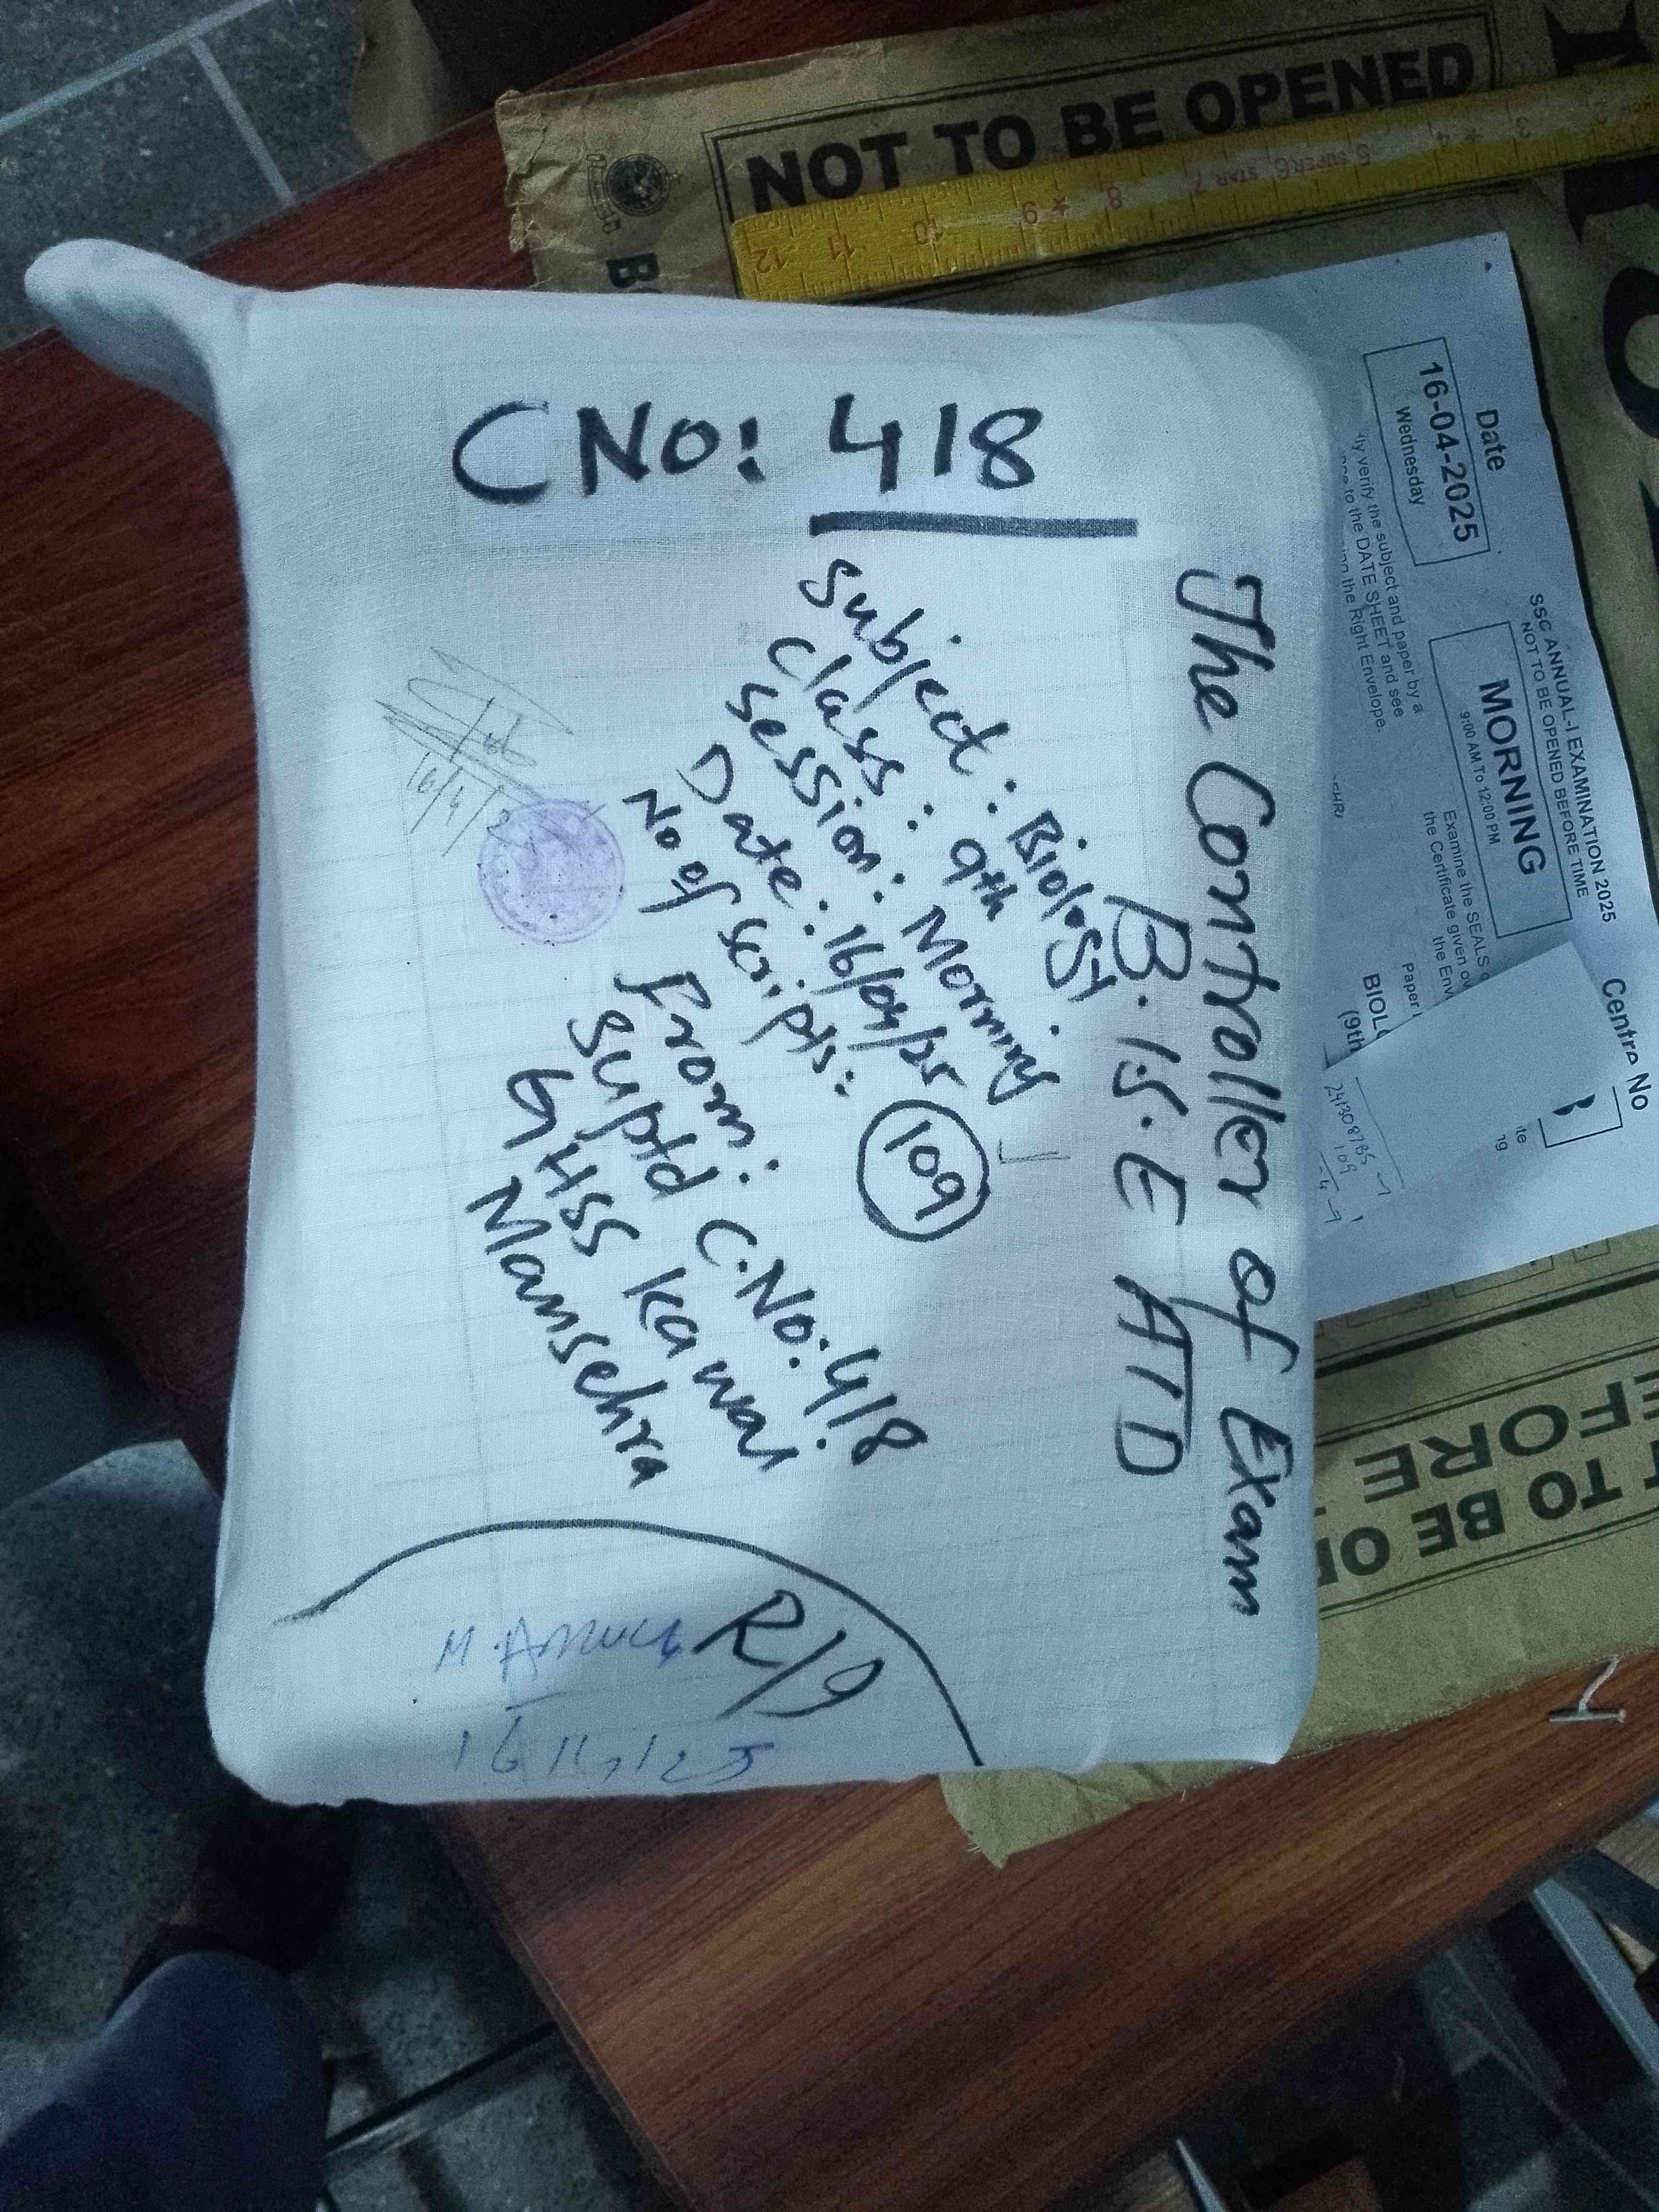 CNo: 418
The Controller of Exam
B.I.S.E ATD
Subject: Biology
Class: 9th
Session: Morning
Date: 16/04/25
No of scripts: 109
From:
Suptd C.No: 418
GHSS Kawai
Mansehra
R/9
16/4/2
M.
NOT TO BE OPENED
12 11 10 9 8 7 STAR 6 SUPER 5 4 3
Centre No
SSC ANNUAL-I EXAMINATION 2025
NOT TO BE OPENED BEFORE TIME
Date
16-04-2025
Wednesday
MORNING
9:00 AM To 12:00 PM
ly verify the subject and paper by a
to the DATE SHEET and see
the Right Envelope.
Examine the SEALS
the Certificate given
the Env
Paper
BIOL
(9th
109
TO BE OP
EFORE